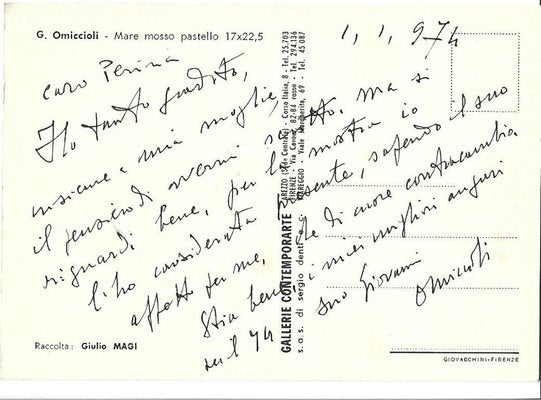 G. Omiccioli - Mare mosso pastello 17x22,5
1, 1, 974
caro Perina
Ho tanto gradito,
insieme a mia moglie,
il pensiero di avermi scritto. ma si
riguardi bene, per la mostra io
l'ho considerata presente, sapendo il suo
affetto per me, che di cuore contraccambia
Stia bene, i miei migliori auguri
nel 74 suo Giovanni
Omiccioli
GALLERIE CONTEMPORARTE
s.a.s. di sergio denti & c.
AREZZO (Sede Centrale) - Corso Italia, 8 - Tel. 25.703
FIRENZE - Via Cavour, 82-84 rosso - Tel. 294.136
VIAREGGIO - Viale Margherita, 69 - Tel. 45 087
Raccolta: Giulio MAGI
GIOVACCHINI-FIRENZE